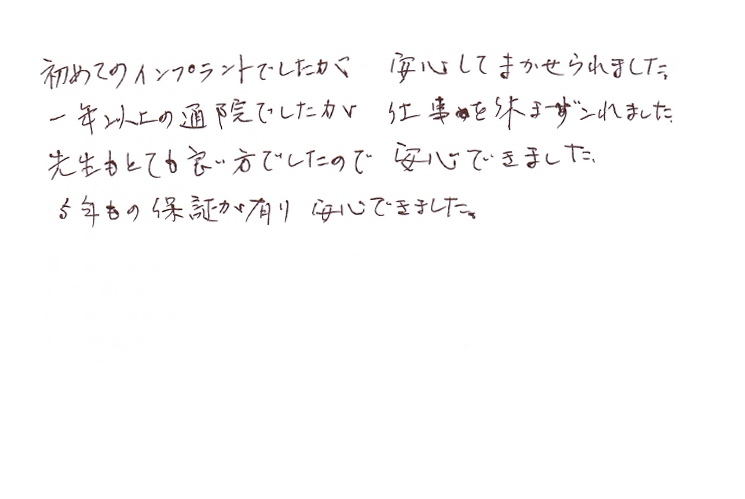 初めてのインプラントでしたが 安心してまかせられました。
一年以上の通院でしたが 仕事を休まずこれました
先生もとても良い方でしたので 安心できました。
5年もの保証が有り 安心できました。